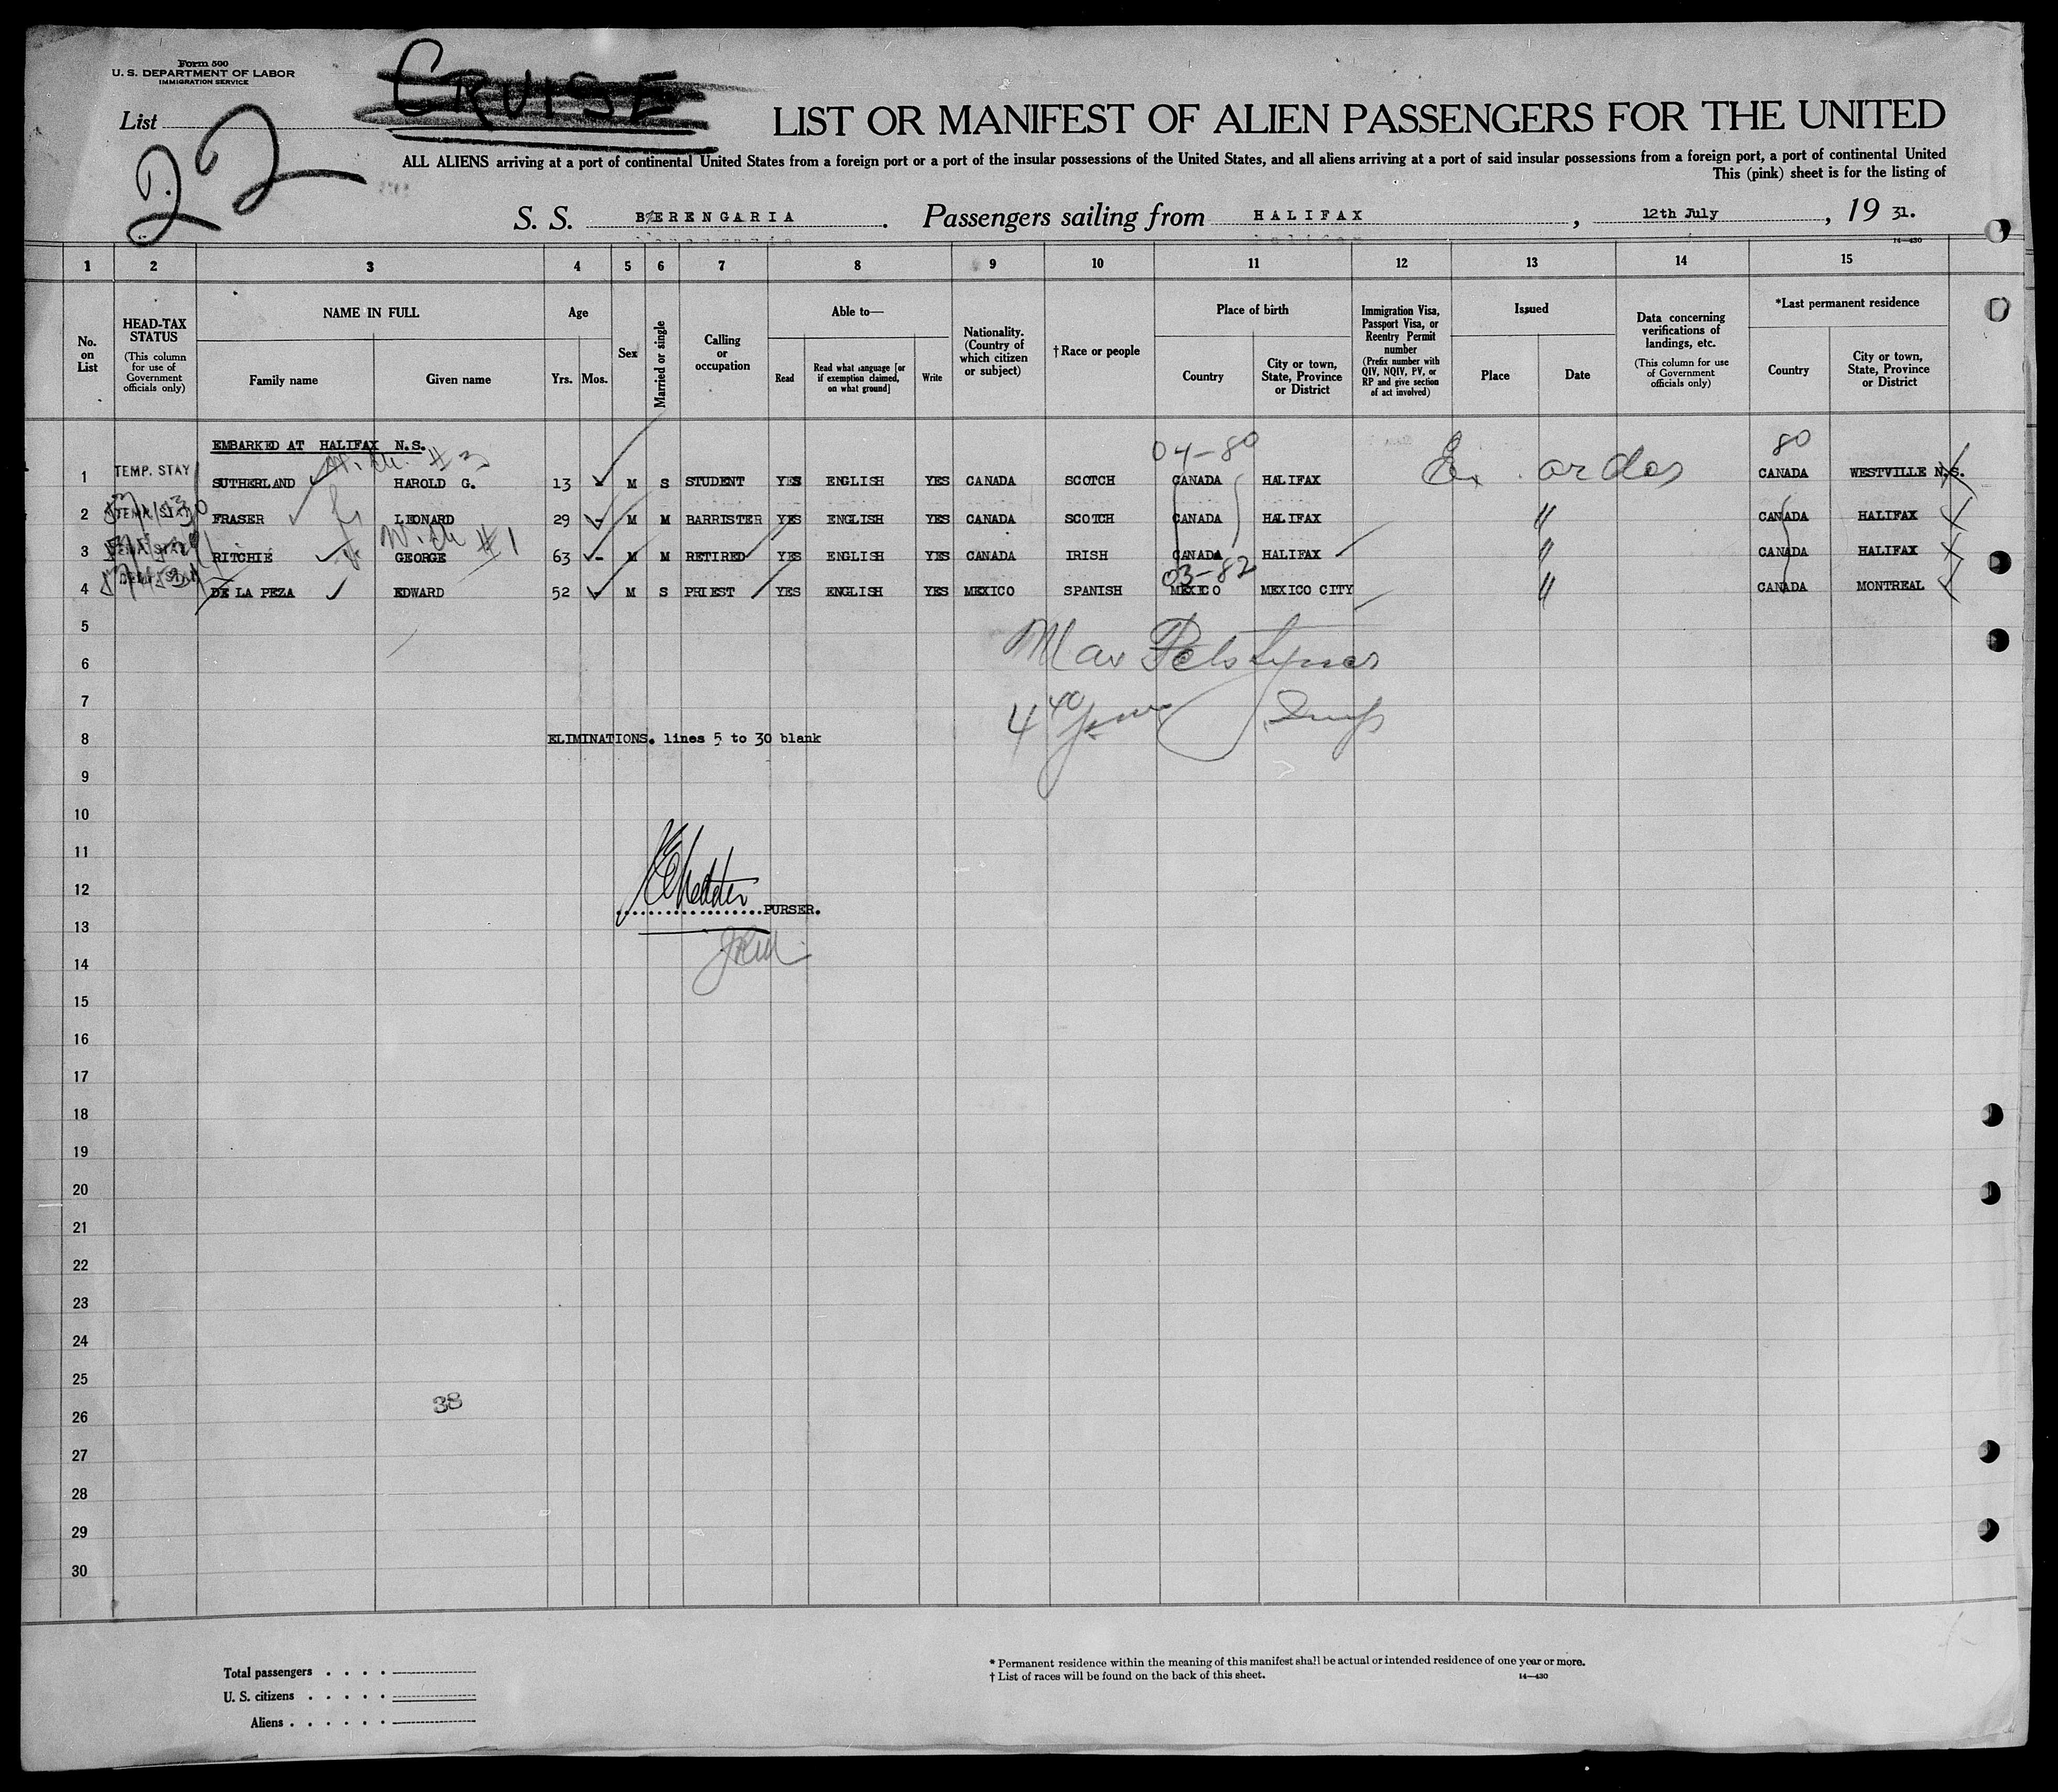 Form 500
U. S. DEPARTMENT OF LABOR
IMMIGRATION SERVICE
List
22
CRUISE
LIST OR MANIFEST OF ALIEN PASSENGERS FOR THE UNITED
ALL ALIENS arriving at a port of continental United States from a foreign port or a port of the insular possessions of the United States, and all aliens arriving at a port of said insular possessions from a foreign port, a port of continental United
This (pink) sheet is for the listing of
S. S. BERENGARIA. Passengers sailing from HALIFAX, 12th July, 19 31.
14—430
1 2 3 4 5 6 7 8 9 10 11 12 13 14 15
No. on List
HEAD-TAX STATUS (This column for use of Government officials only)
NAME IN FULL
Family name Given name
Age
Yrs. Mos.
Sex
Married or single
Calling or occupation
Able to—
Read Read what language [or if exemption claimed, on what ground] Write
Nationality. (Country of which citizen or subject)
† Race or people
Place of birth
Country City or town, State, Province or District
Immigration Visa, Passport Visa, or Reentry Permit number (Prefix number with QIV, NQIV, PV, or RP and give section of act involved)
Issued
Place Date
Data concerning verifications of landings, etc. (This column for use of Government officials only)
*Last permanent residence
Country City or town, State, Province or District
EMBARKED AT HALIFAX N.S.
04-80 80
1 TEMP. STAY SUTHERLAND HAROLD G. 13 - M S STUDENT YES ENGLISH YES CANADA SCOTCH CANADA HALIFAX CANADA WESTVILLE N.S.
2 TEMP. STAY FRASER LEONARD 29 - M M BARRISTER YES ENGLISH YES CANADA SCOTCH CANADA HALIFAX " CANADA HALIFAX
With #1
3 TEMP. STAY RITCHIE GEORGE 63 - M M RETIRED YES ENGLISH YES CANADA IRISH CANADA HALIFAX " CANADA HALIFAX
03-82
4 TEMP. STAY DE LA PEZA EDWARD 52 - M S PRIEST YES ENGLISH YES MEXICO SPANISH MEXICO MEXICO CITY " CANADA MONTREAL
5
6
7
8 ELIMINATIONS. lines 5 to 30 blank
9
10
11
12
PURSER.
13
14
15
16
17
18
19
20
21
22
23
24
25
38
26
27
28
29
30
Total passengers
U. S. citizens
Aliens
* Permanent residence within the meaning of this manifest shall be actual or intended residence of one year or more.
† List of races will be found on the back of this sheet.
14—430